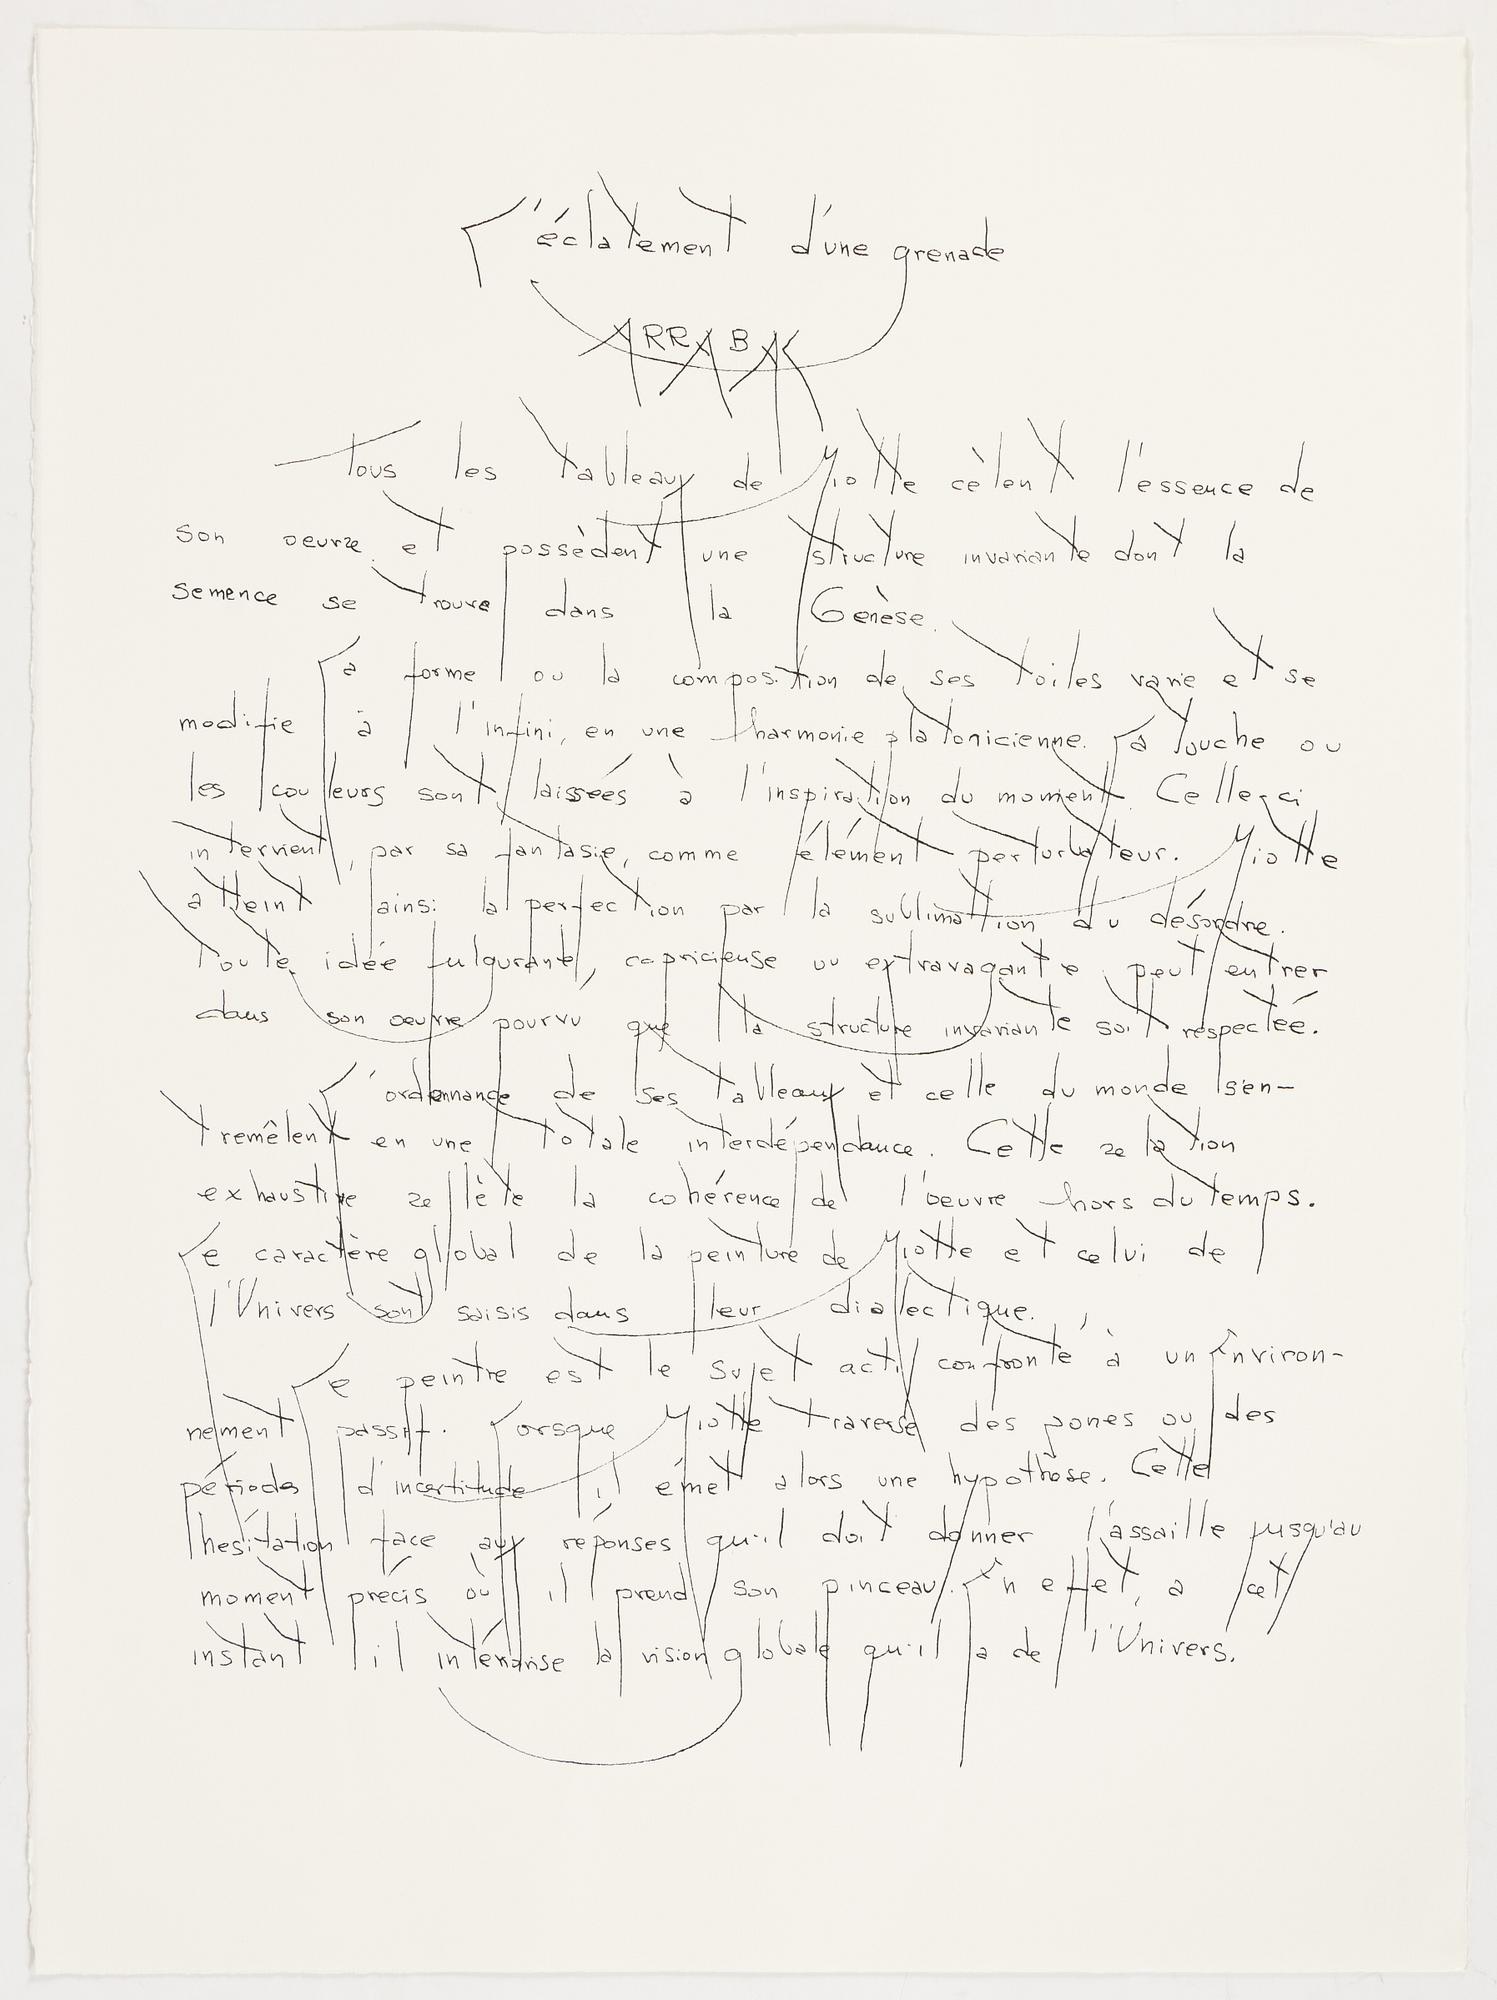 L'éclatement d'une grenade
ARRABAL
Tous les tableaux de Miotte cèlent l'essence de
son oeuvre et possèdent une structure invariante dont la
semence se trouve dans la Genèse.
La forme ou la composition de ses toiles varie et se
modifie à l'infini, en une harmonie platonicienne. La touche ou
les couleurs sont laissées à l'inspiration du moment. Celle-ci
intervient, par sa fantasie, comme élément perturbateur. Miotte
atteint ainsi la perfection par la sublimation du désordre.
Toute idée fulgurante, capricieuse ou extravagante peut entrer
dans son oeuvre pourvu que la structure invariante soit respectée.
L'ordonnance de ses tableaux et celle du monde s'en-
tremêlent en une totale interdépendance. Cette relation
exhaustive reflète la cohérence de l'oeuvre hors du temps.
Le caractère global de la peinture de Miotte et celui de
l'Univers sont saisis dans leur dialectique.
Le peintre est le sujet actif confronté à un environ-
nement passif. Lorsque Miotte traverse des zones ou des
périodes d'incertitude il émet alors une hypothèse. Cette
hésitation face aux réponses qu'il doit donner l'assaille jusqu'au
moment précis où il prend son pinceau. En effet, a cet
instant il intériorise la vision globale qu'il a de l'Univers.